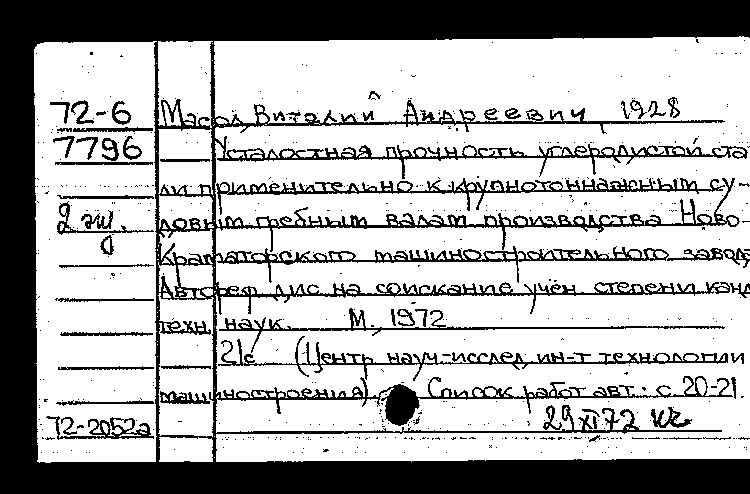 72-6 Масол, Виталий Андреевич, 1928
7796 Усталостная прочность углеродистой ста-
ли применительно к крупнотоннажным су-
2 эк. довым гребным валам производства Ново-
Краматорского машиностроительного завода
Автореф дис на соискание учён степени канд
техн. наук. М., 1972
21с (Центр науч-исслед ин-т технологии
машиностроения) Список работ авт.: с 20-21
72-2052а 29 XI 72